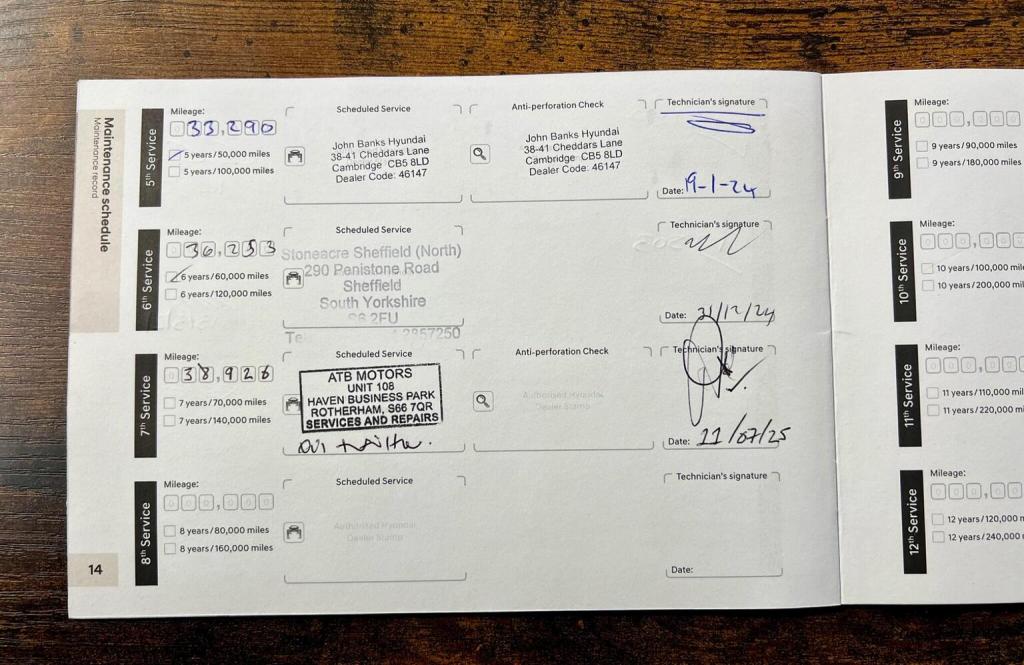 Maintenance schedule
Maintenance record
5th Service
Mileage:
33,290
5 years/50,000 miles
5 years/100,000 miles
Scheduled Service
John Banks Hyundai
38-41 Cheddars Lane
Cambridge CB5 8LD
Dealer Code: 46147
Anti-perforation Check
John Banks Hyundai
38-41 Cheddars Lane
Cambridge CB5 8LD
Dealer Code: 46147
Technician's signature
Date: 19-1-24
6th Service
Mileage:
36,253
6 years/60,000 miles
6 years/120,000 miles
Scheduled Service
Stoneacre Sheffield (North)
290 Penistone Road
Sheffield
South Yorkshire
S6 2FU
Technician's signature
Date: 31/12/24
7th Service
Mileage:
38,926
7 years/70,000 miles
7 years/140,000 miles
Scheduled Service
ATB MOTORS
UNIT 108
HAVEN BUSINESS PARK
ROTHERHAM, S66 7QR
SERVICES AND REPAIRS
Anti-perforation Check
Authorised Hyundai
Dealer Stamp
Technician's signature
Date: 11/07/25
8th Service
Mileage:
000,000
8 years/80,000 miles
8 years/160,000 miles
Scheduled Service
Authorised Hyundai
Dealer Stamp
Technician's signature
Date:
14
9th Service
Mileage:
000,00
9 years/90,000 miles
9 years/180,000 miles
10th Service
Mileage:
000,00
10 years/100,000
10 years/200,000
11th Service
Mileage:
000,00
11 years/110,000
11 years/220,000
12th Service
Mileage:
000,00
12 years/120,000
12 years/240,000